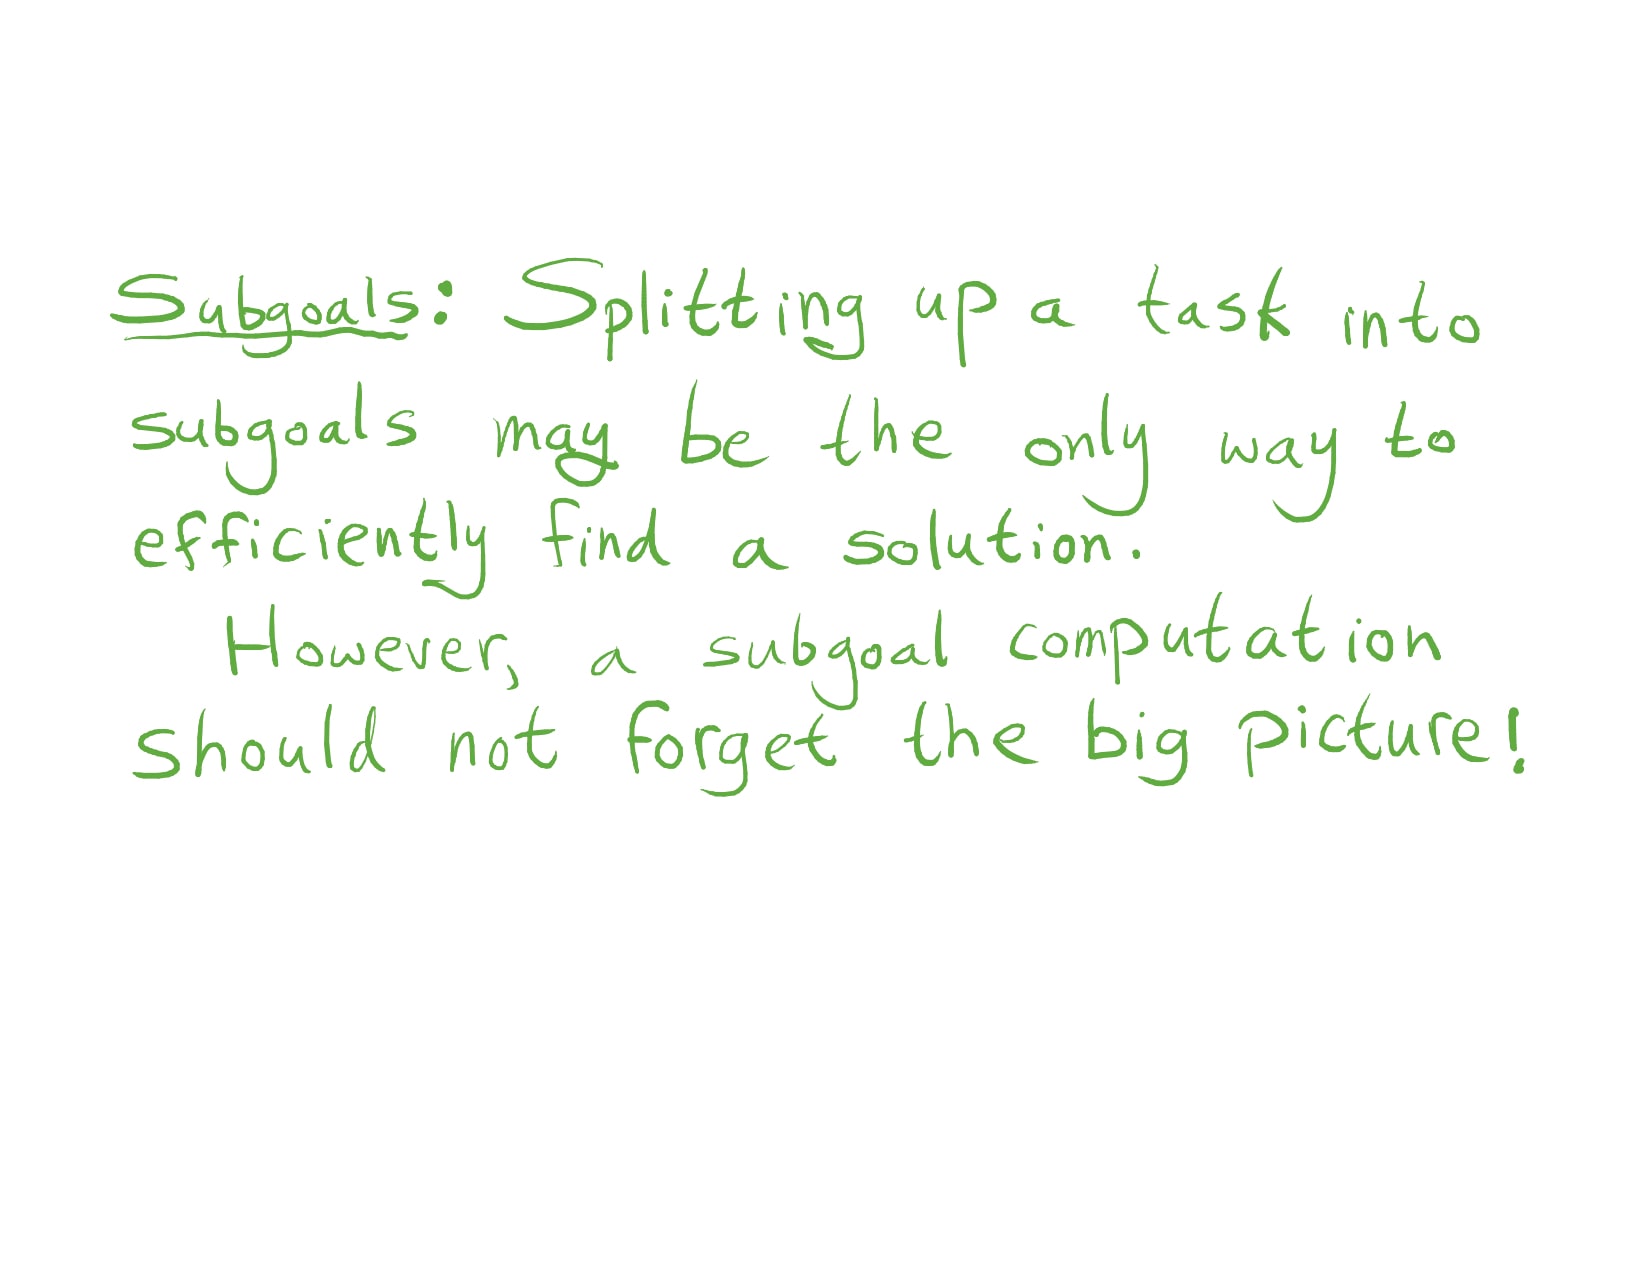 Subgoals: Splitting up a task into
subgoals may be the only way to
efficiently find a solution.
However, a subgoal computation
should not forget the big picture!